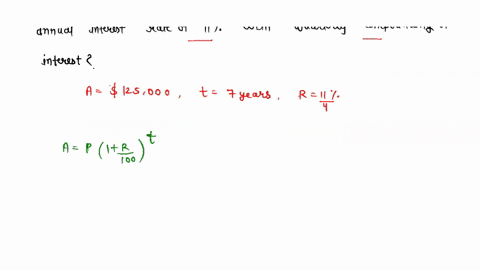 annual interest rate of 11% with quarterly compounding of
interest?
A = $125,000, t = 7 years, R = 11%/4
A = P (1 + R/100)^t